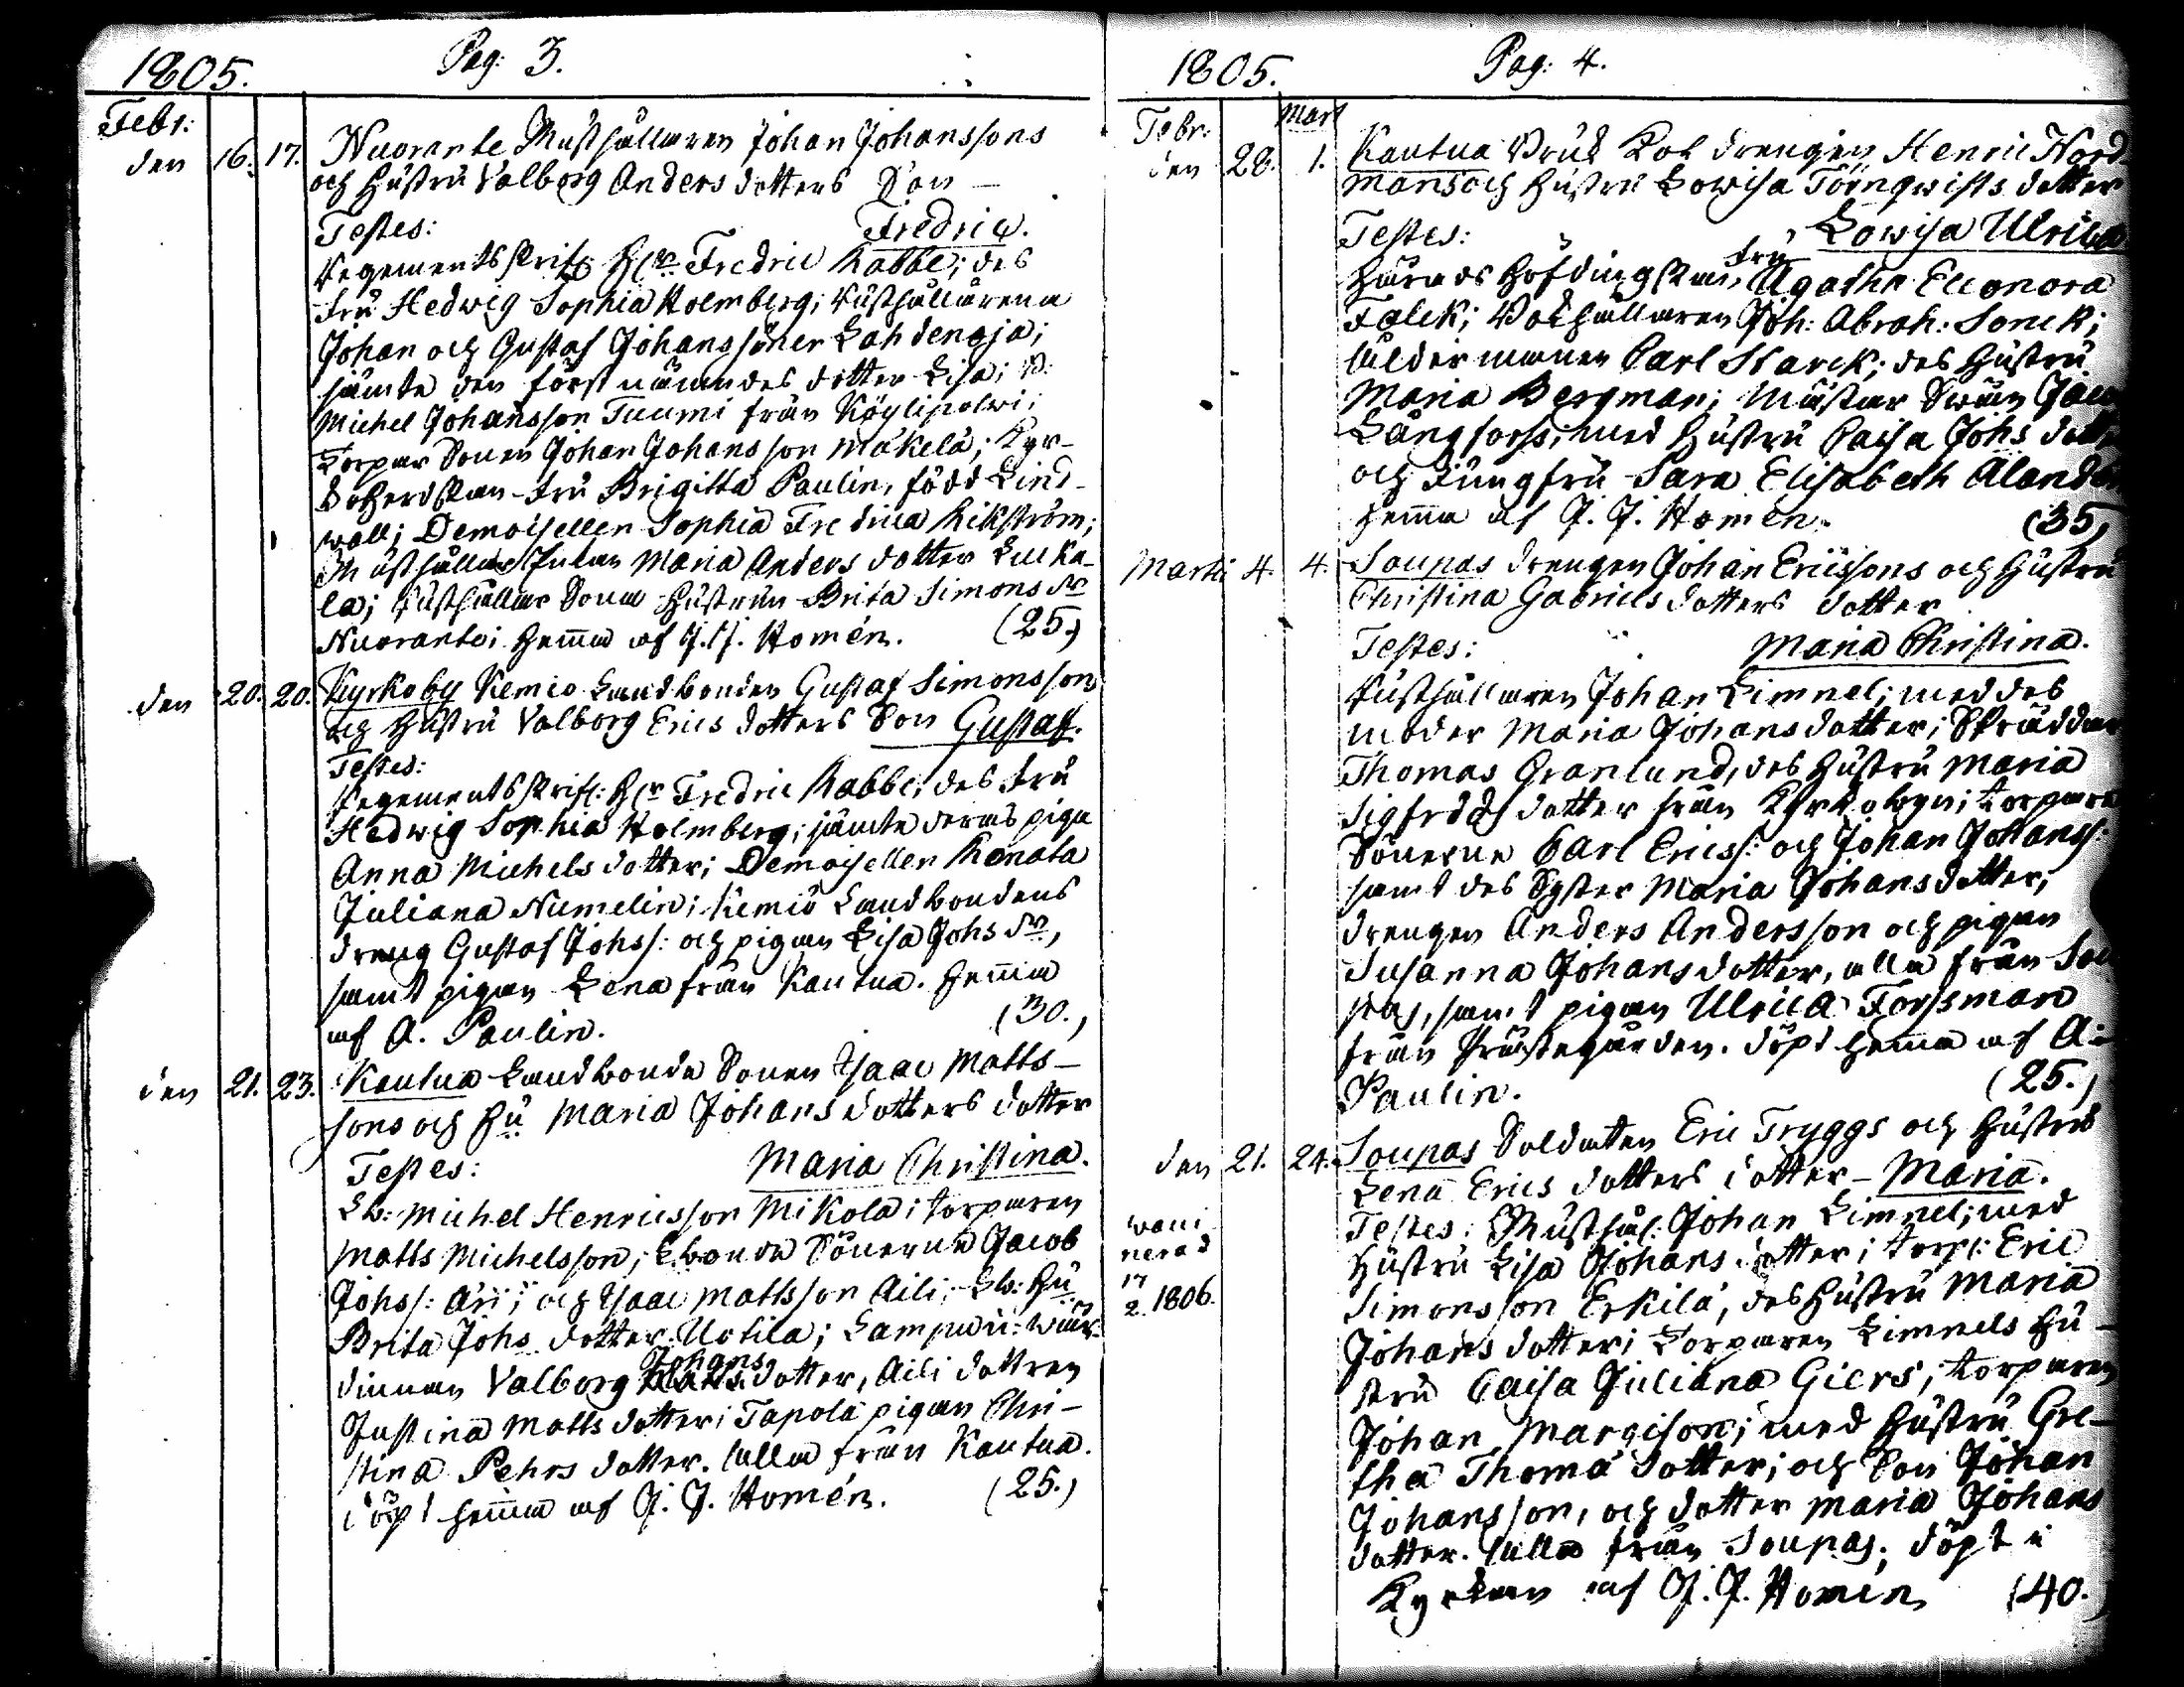 1805. Pag: 3.
Febr:
den 16. 17. Nuorante Rusthållaren Johan Johanssons
och hustru Valborg Anders dotters Son –
Testes: Fredric.
Regements skrif: H:r Fredric Rabbe; des
fru Hedwig Sophia Holmberg; Rusthållarena
Johan och Gustaf Johanssöner Lahdenoja;
jämte den förstnämndes dotter Lisa;
Michel Johansson Tuumi från Köylipolwi;
Torpar Sonen Johan Johansson Mäkelä; Kyr-
koherdskan fru Brigitta Paulin, född Lind-
wall; Demoisellen Sophia Fredrica Rikström;
Rusthållar Enkan Maria Anders dotter Luka-
la; Rusthållar Sona hustrun Brita Simons dr
Nuorante; hemma af J. J. Homén. (25.)
den 20. 20. Kyrkoby Kemiö Landbonden Gustaf Simonssons
och hustru Valborg Erics dotters Son Gustaf.
Testes:
Regements skrif: H:r Fredric Rabbe; des fru
Hedwig Sophia Holmberg; jämte deras piga
Anna Michels dotter; Demoisellen Renata
Juliana Numelin; Kemiö Landbondens
dreng Gustaf Johss: och pigan Lisa Johs dr,
samt pigan Lena från Kautua. hemma
af A. Paulin. (30.)
den 21. 23. Kautua Landbonde Sonen Isaac Matts-
sons och hu Maria Johans dotters dotter
Testes: Maria Christina.
Lb: Michel Henricsson Mikola; torparen
Matts Michelsson; Lbonde Sönerna Jacob
Johss: Äri; och Isaac Mattsson Aili; Lb: hu
Brita Johs dotter Uotila; Lampwii: wär-
dinnan Valborg Johans dotter, Aili dottren
Justina Matts dotter; Tapola pigan Chri-
stina Pehrs dotter. alla från Kautua.
döpt hemma af J. J. Homén. (25.)
1805. Pag: 4.
Febr: Mart
den 28. 1. Kautua Bruk Kol drengen Henric Nord-
mans och hustru Lowisa Törnqwists dotter
Testes: Lowisa Ulrica
Härads höfdingskan, fru Agatha Eleonora
Falck; Bokhållaren Joh: Abrah: Sonck;
ålderman Carl Starck; des hustru
Maria Bergman; Mästar Swän
Långfors; med hustru Caisa Johs
och Jungfru Sara Elisabeth
hemma af J. J. Homén. (35.)
Martii 4. 4. Soupas drengen Johan Ericssons och hustru
Christina Gabriels dotters dotter
Testes: Maria Christina.
Rusthållaren Johan Limnel; med des
moder Maria Johans dotter; Skräddar
Thomas Granlund, des hustru Maria
Sigfrids dotter från Kyrkobyn; torpare
Sönerne Carl Ericss: och Johan Johanss:
samt des Syster Maria Johans dotter;
drengen Anders Andersson och pigan
Susanna Johans dotter, alla från Sou-
pas, samt pigan Ulrica Forssman
från Prästegården. döpt hemma af A:
Paulin. (25.)
den 21. 24. Soupas Soldaten Eric Tryggs och hustrus
Lena Erics dotters dotter – Maria.
Testes: Rusthål: Johan Limnel; med
hustru Lisa Johans dotter; torp: Eric
Simonsson Erkilä, des hustru Maria
Johans dotter; Torparen Limnels hu-
stru Caisa Juliana Giers; torparen
Johan Margison; med hustru Gre-
tha Thomä dotter; och Son Johan
Johansson, och dotter Maria Johans
dotter. alla från Soupas. döpt i
Kyrkan af J. J. Homén (40.)
wacci
nerad
17
2. 1806.